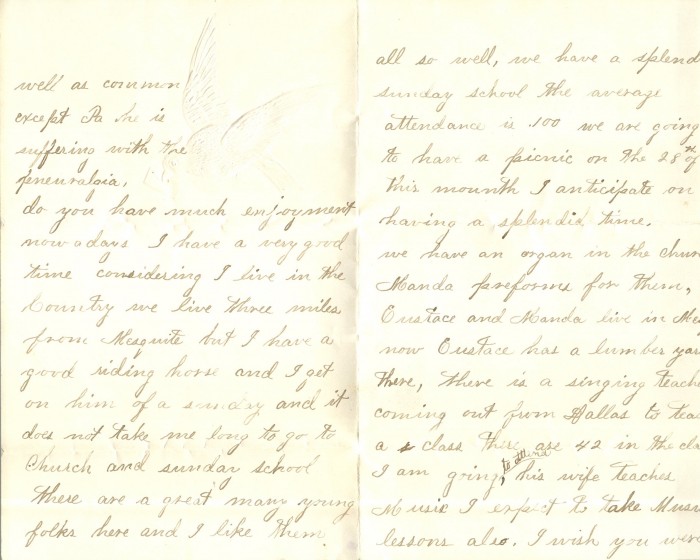 well as common
except Pa he is
suffering with the
pneuralgia,
do you have much enjoyment
nowadays I have a very good
time considering I live in the
Country we live three miles
from Mesquite but I have a
good riding horse and I get
on him of a sunday and it
does not take me long to go to
Church and sunday school
there are a great many young
folks here and I like them
all so well, we have a splend
sunday school the average
attendance is 100 we are going
to have a picnic on the 28th of
this mounth I anticipate on
having a splendid time.
we have an organ in the Chur
Manda preforms for them,
Eustace and Manda live in Mes
now Eustace has a lumber yar
there, there is a singing teache
coming out from Dallas to teac
a class there are 42 in the cla
I am going to attend his wife teaches
Music I expect to take Musi
lessons also. I wish you wer